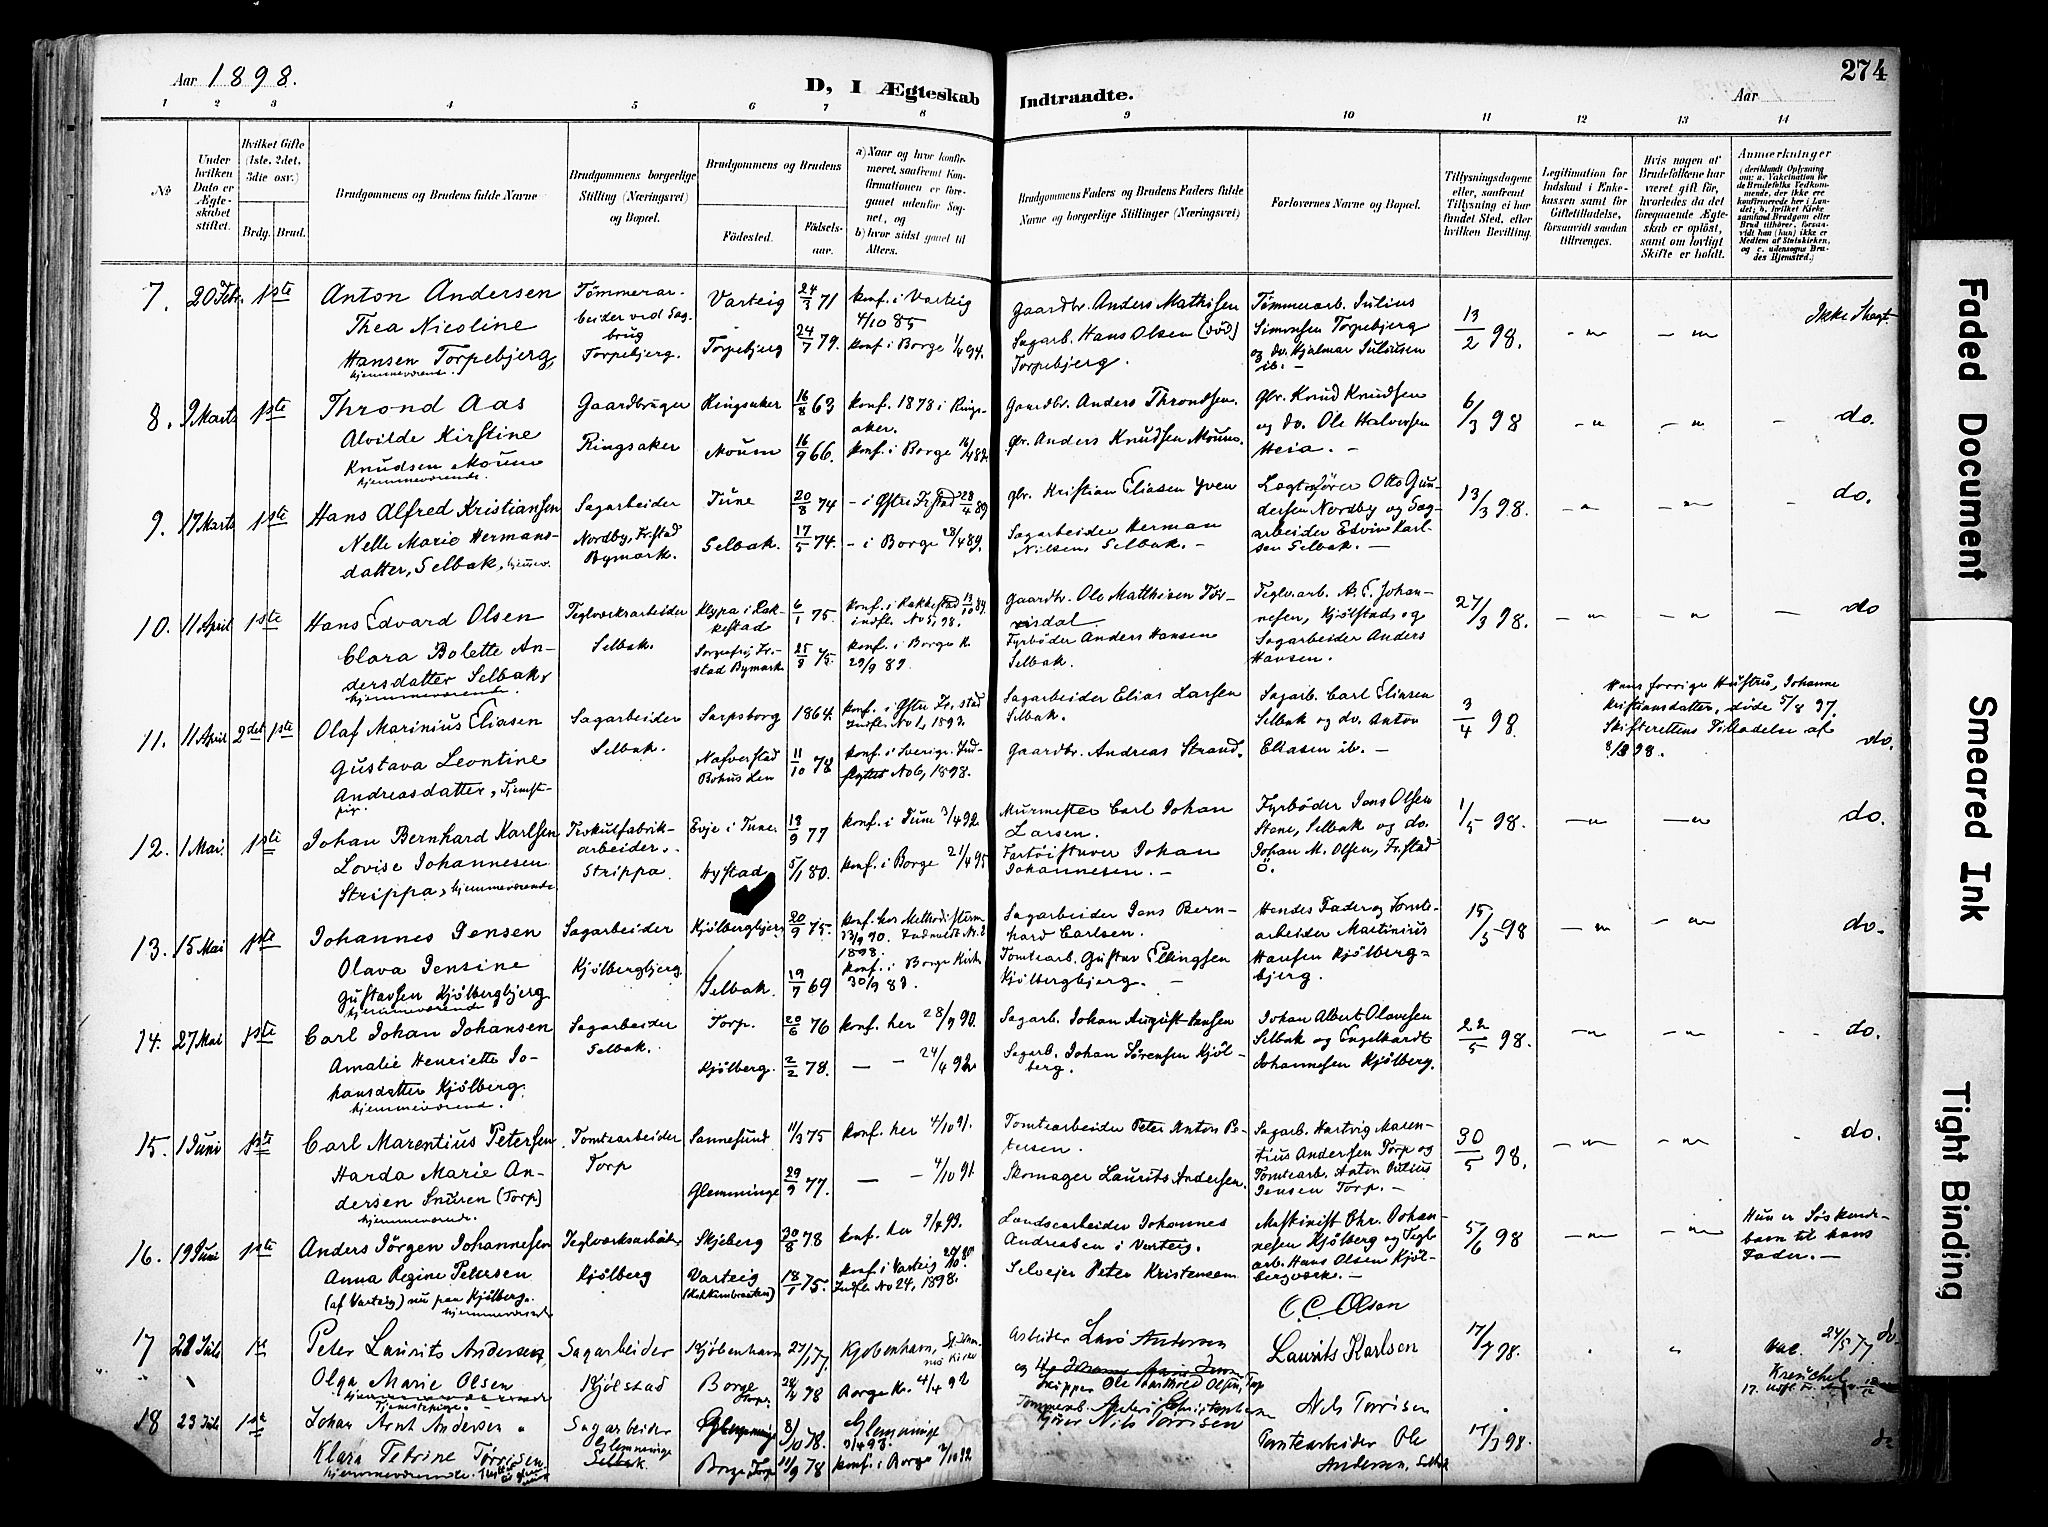 Aar 1898.
D, I Ægteskab
Indtraadte.
Aar
274
1 2 3 4 5 6 7 8 9 10 11 12 13 14
No
Under hvilken Dato er Ægteskabet stiftet.
Hvilket Gifte (1ste, 2det, 3die osv.)
Brdg. Brud.
Brudgommens og Brudens fulde Navne
Brudgommens borgerlige Stilling (Næringsvei) og Bopæl.
Brudgommens og Brudens
Fødested.
Fødselsaar.
a) Naar og hvor konfirmeret, saafremt Konfirmationen er foregaaet udenfor Sognet, og
b) hvor sidst gaaet til Alters.
Brudgommens Faders og Brudens Faders fulde Navne og borgerlige Stillinger (Næringsvei)
Forlovernes Navne og Bopæl.
Tillysningsdagene eller, saafremt Tillysning ei har fundet Sted, efter hvilken Bevilling.
Legitimation for Indskud i Enkekassen samt for Giftetilladelse, forsaavidt saadan tiltrænges.
Hvis nogen af Brudefolkene har været gift før, hvorledes da det foregaaende Ægteskab er opløst, samt om lovligt Skifte er holdt.
Anmærkninger
(deriblandt Oplysning om: a. Vakcination for de Brudefolks Vedkommende, der ikke ere konfirmerede her i Landet; b. hvilket Kirkesamfund Brudgom eller Brud tilhører, forsaavidt han (hun) ikke er Medlem af Statskirken, og c. udensogns Brudes Hjemsted.)
7. 20 Febr. 1ste
Anton Andersen
Thea Nicoline
Hansen Torpebjerg,
hjemmeværende.
Tømmerarbeider ved Sagbrug
Torpebjerg.
Varteig 24/3 71
Torpebjerg 24/7 79.
konf. i Varteig
4/10 85
konf. i Borge
Gaardbr. Anders Mathisen
Sagarb. Hans Olsen (død)
Torpebjerg.
Tømmerarb. Julius
Simonsen Torpebjerg
og do. Hjalmar Juliusen
ib. –
13/2 98.
Ikke Slægt.
8. 9 Marts 1ste
Thrond Aas
Alvilde Kirstine
Knudsen Moum
hjemmeværende.
Gaardbruger
Ringsaker
Ringsaker 16/8 63
Moum 16/9 66.
konf. 1878 i Ringsaker.
konf. i Borge
Gaardbr. Anders Throndsen.
gbr. Anders Knudsen Moum.
gbr. Knud Knudsen
og do. Ole Halvorsen
Heia. –
6/3 98
do.
9. 17 Marts 1ste
Hans Alfred Kristiansen
Nelle Marie Hermansdatter, Selbak, hjemmev.
Sagarbeider
Nordby, Fr.stad
Bymark.
Tune 20/8 74
Selbak. 17/5 74.
– i Østre Fr.stad 28/4 89
– i Borge 28/4 89.
gbr. Kristian Eliasen Yven
Sagarbeider Herman
Nielsen, Selbak. –
Lagtsfører Otto Gundersen Nordby og Sagarbeider Edvin Karlsen Selbak. –
13/3 98.
do.
10. 11 April 1ste
Hans Edvard Olsen
Clara Bolette Andersdatter Selbak,
hjemmeværende.
Teglverksarbeider
Selbak.
Klypa i Rakkestad 6/1 75.
Sorgenfri, Fr.stad Bymark 75.
konf. i Rakkestad
indfl. No 5, 98.
konf. i Borge K.
29/9 89.
Gaardbr. Ole Matthisen
Fyrbøder Anders Hansen
Selbak.
Teglv.arb. A. E. Johannesen, Kjølstad, og
Sagarbeider Anders
Hansen.
27/3 98.
do
11. 11 April 2det 1ste
Olaf Marinius Eliasen
Gustava Leontine
Andreasdatter, Tjenestpige.
Sagarbeider
Selbak.
Sarpsborg 1864.
Nafverstad
Bohus Len 11/10 78
konf. i Østre Fr.stad
Indfl. No 1, 1893.
konf. i Sverige. Indflyttet No 6, 1898.
Sagarbeider Elias Larsen
Selbak.
Gaardbr. Andreas Strand.
Sagarb. Carl Eliasen
Selbak og do. Anton
Eliasen ib. –
3/4 98.
Hans forrige Hustru, Johanne
Kristiansdatter, døde 5/8 97.
Skifterettens Tilladelse af
98.
do.
12. 1 Mai. 1ste
Johan Bernhard Karlsen
Lovise Johannesen
Strippa, hjemmeværende.
arbeider.
Strippa.
Evje i Tune. 18/9 77
Hystad 5/1 80.
konf. i Tune 3/4 92
konf. i Borge 21/4 95
Murmester Carl Johan
Larsen.
Fartøistuver Johan
Johannesen. –
Fyrbøder Jens Olsen
Stene, Selbak og do.
Johan M. Olsen, Fr.stad
Ö.
1/5 98.
do.
13. 15 Mai 1ste
Johannes Jensen
Olava Jensine
Gustavsen Kjølbergbjerg
hjemmeværende
Sagarbeider
Kjølbergbjerg
Kjølbergbjerg 20/9 75.
Selbak. 19/7 69
konf. hos Methodisterne
1898.
konf. i Borge Kirke
30/9 83.
Sagarbeider Jens Bernhard Carlsen.
Tomtearb. Gustav Ellingsen
Kjølbergbjerg. –
Hendes Fader og Tomtearbeider Martinius
Hansen Kjølbergbjerg.
15/5 98
do.
14. 27 Mai 1ste
Carl Johan Johansen
Amalie Henriette Johansdatter Kjølberg.
hjemmeværende.
Sagarbeider
Selbak.
Torp. 20/6 76
Kjølberg. 2/2 78.
konf. her 28/9 90.
– – 24/4 92
Sagarb. Johan August Hansen
Sagarb. Johan Sørensen Kjølberg.
Johan Albert Olavesen
Selbak og Engelhardt
Johannesen Kjølberg.
22/5 98.
do.
15. 1 Juni 1ste
Carl Marentius Petersen
Harda Marie Andersen Snuren (Torp)
hjemmeværende.
Tomtearbeider
Torp
Sannesund 11/3 75
Glemminge 29/9 77.
konf. her 4/10 91.
– – 4/10 91.
Tomtearbeider Peter Anton Petersen.
Skomager Laurits Andersen.
Sagarb. Hartvig Marentius Andersen Torp og
Tomtearb. Anton Julius
Jensen Torp. –
30/5 98.
do.
16. 19 Juni 1ste
Anders Jørgen Johannesen
Anna Regine Petersen
(af Varteig) nu paa Kjølberg.
hjemmeværende
Teglværksarbeider
Kjølberg
Skjeberg 20/8 78
Varteig 18/1 75.
konf. her 9/4 93.
konf. i Varteig
Indfl. No 24, 1898.
Landsearbeider Johannes
Andreasen i Varteig.
Selveier Peter Kristensen
Maskinist Chr. Johannesen Kjølberg og Teglarb. Hans Olsen Kjølbergværk. –
5/6 98
Hun er Søskendebarn til hans
Fader. –
17 1st
Peter Laurits Andersen
Olga Marie Olsen
Sagarbeider
Kjølstad
Kjøbenhavn
Borge
Torp.
Kjøbenhavn,
Borge K. 4/4 92
Arbeider Lars Andersen
O. C. Olsen
Laurits Karlsen
17/7 98.
do
18 23 Juli 1st
Johan Arnt Andersen
Klara Petrine Tørrisen
hjemmeværende.
Sagarbeider
Glemminge
Selbak
8/10 78.
Borge Torp 11/9 78
Glemminge
konf. i Borge
Nils Tørrisen
Nils Tørrisen
Tomtearbeider Ole
Andersen, Selbak
17/7 98.
do
Faded Document
Smeared Ink
Tight Binding